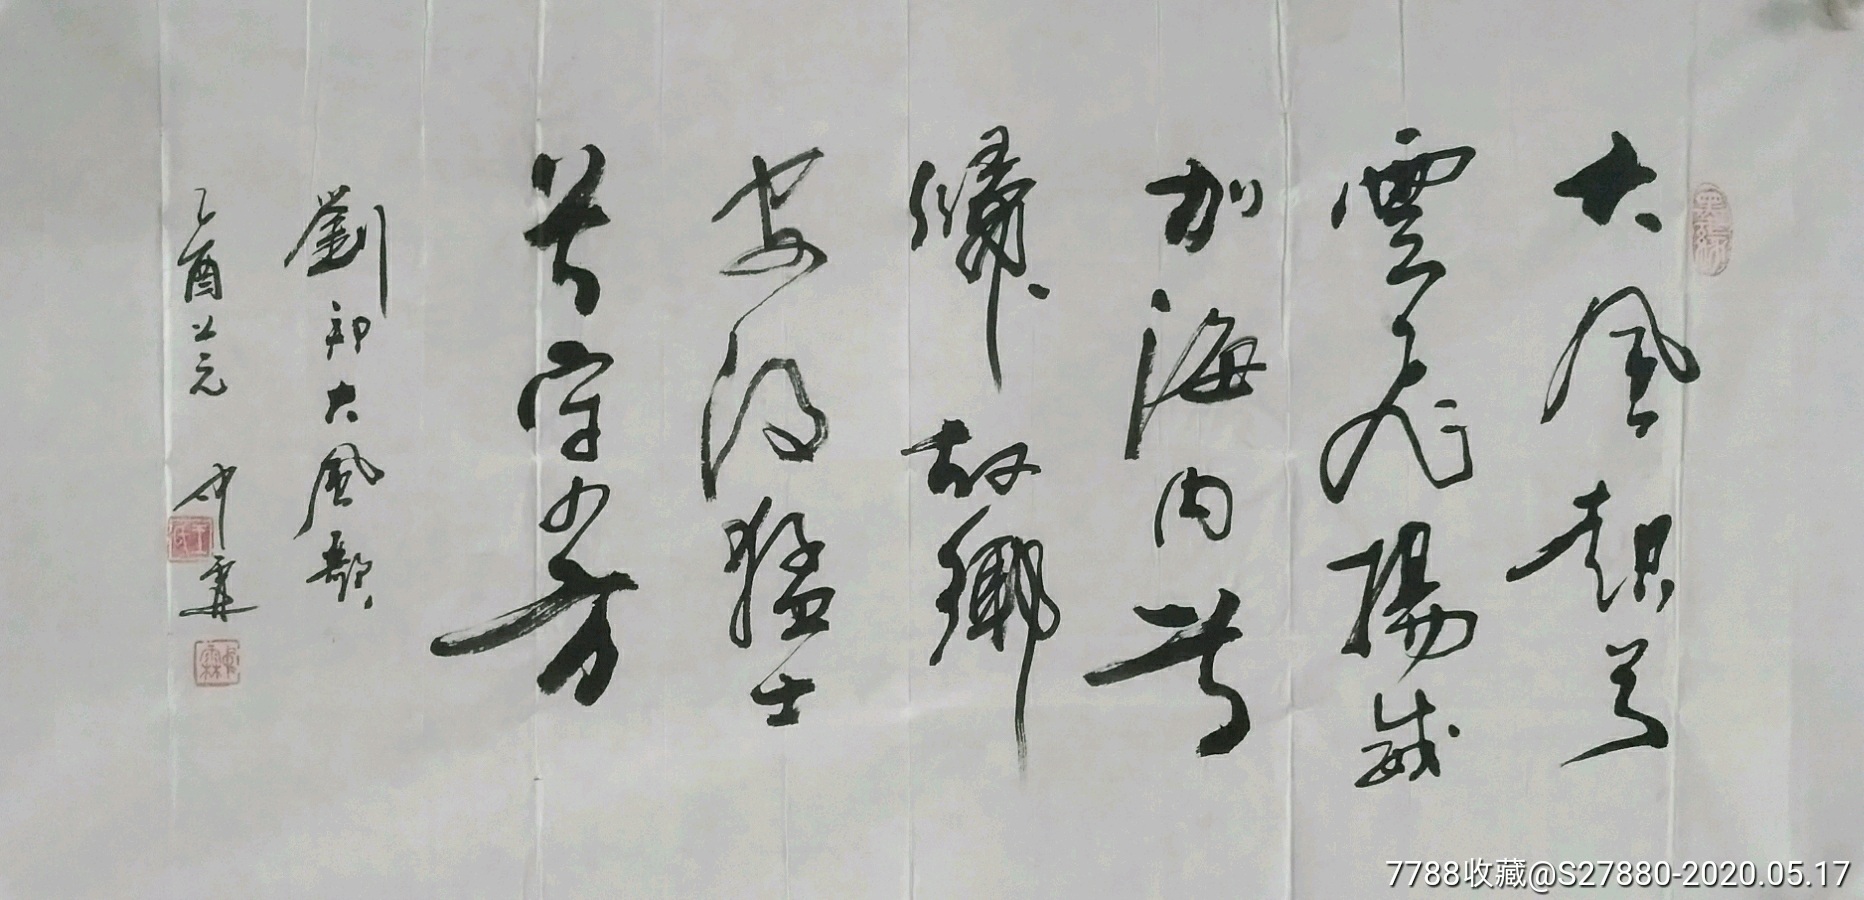 大風起兮
雲飛陽威
加海内兮
歸故鄉
安得猛士
兮守四方
劉邦大風歌
乙酉 仲霖
7788收藏@S27880-2020.05.17